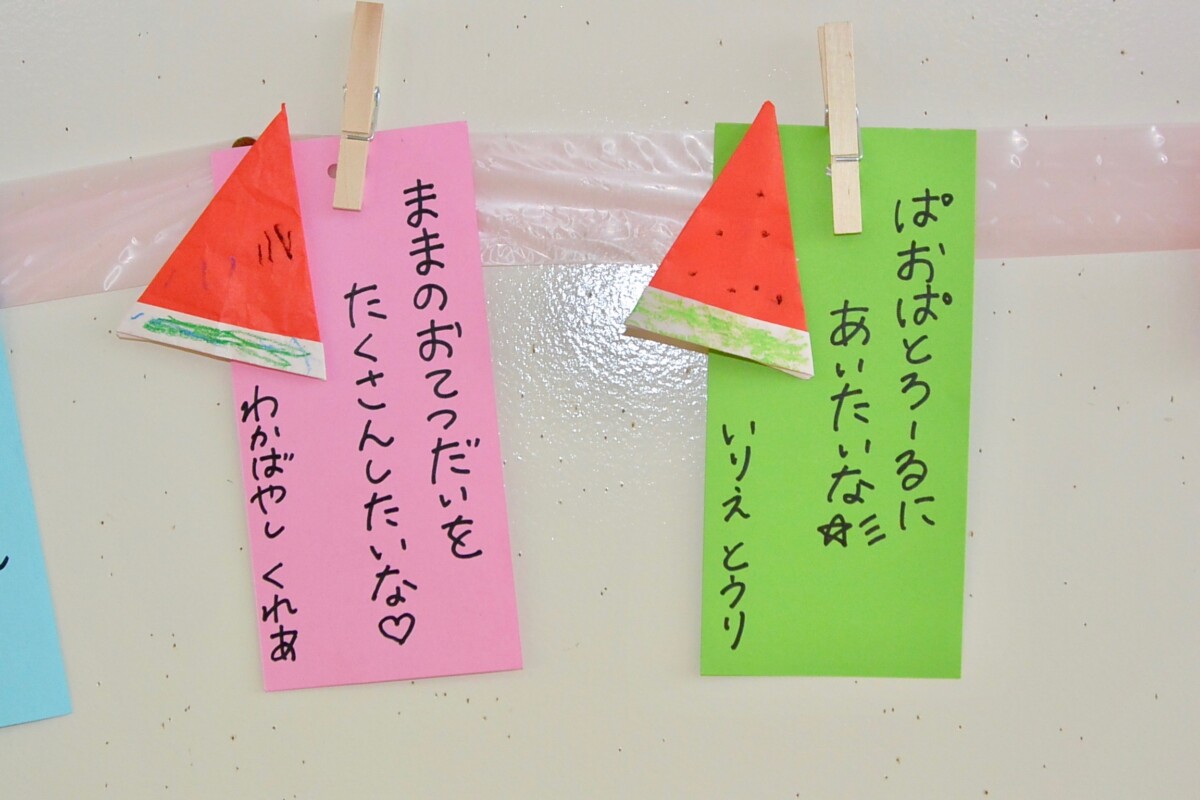 ままのおてつだいを
たくさんしたいな♡
わかばやし くれあ
ぱおぱとろーるに
あいたいな☆
いりえ とうり